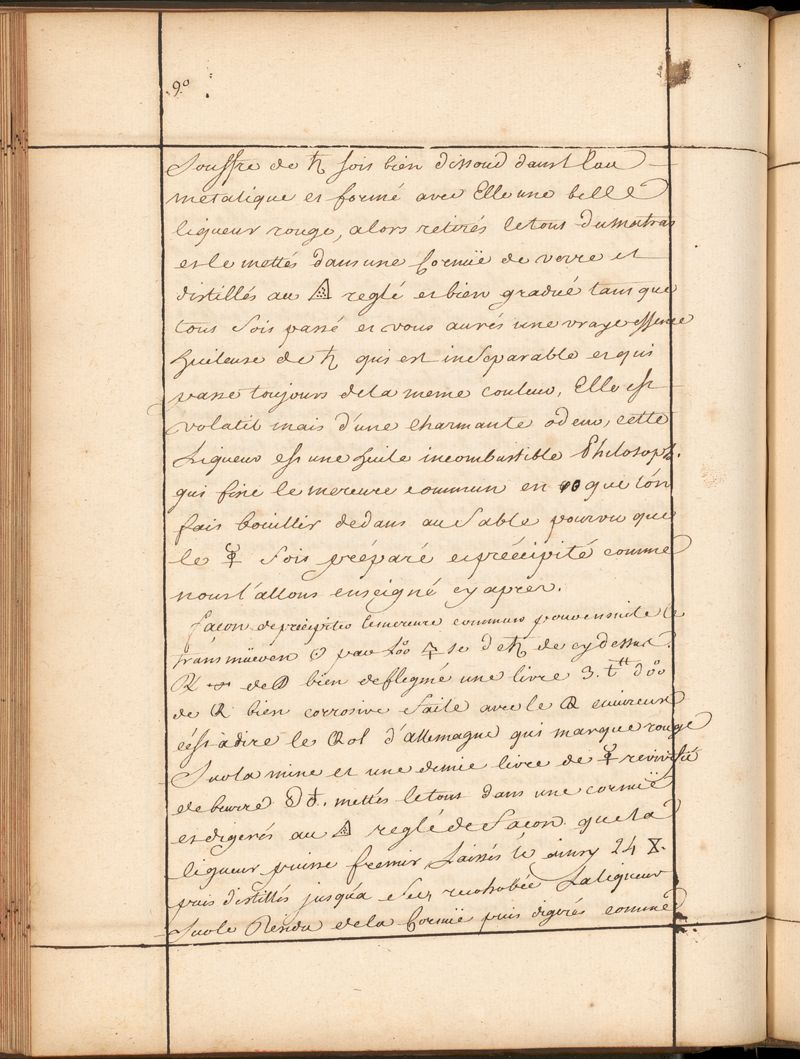 90
Souffre de ♄ sois bien dissoud dans l'eau
metalique et formé avec Elle une belle
liqueur rouge, alors retirés le tous du matras
et le mettés dans une Cornuë de verre et
distillés au 🜂 reglé et bien gradué tans que
tous Sois passé et vous aurés une vraye essence
huileuse de ♄ qui est inseparable et qui
passe toujours de la meme couleur, Elle est
volatil mais d'une Charmante odeur, cette
Liqueur est une huile incombustible Philosoph.
qui fixe le mercure commun en que l'on
fais bouillir dedans au Sable pourvu que
le ☿ Sois préparé et précipité comme
nous l'allons enseigné cy aprer.
façon de précipiter le mercure commun pour ensuite le
transmüer en ☉ par de ♄ de cy dessus.
bien deflegmé une livre 3.
de bien corrosive faite avec le cuivreux
c'est a dire le d'allemagne qui marque rouge
Sur la mine et une demie livre de ☿ revivifié
de beurre mettés le tous dans une cornuë
et digerés au 🜂 reglé de façon que la
liqueur puisse fremir Laissés le 24
puis distillés jusqu'a Sec recohobée La liqueur
Sur le de la Cornuë puis digerés comme